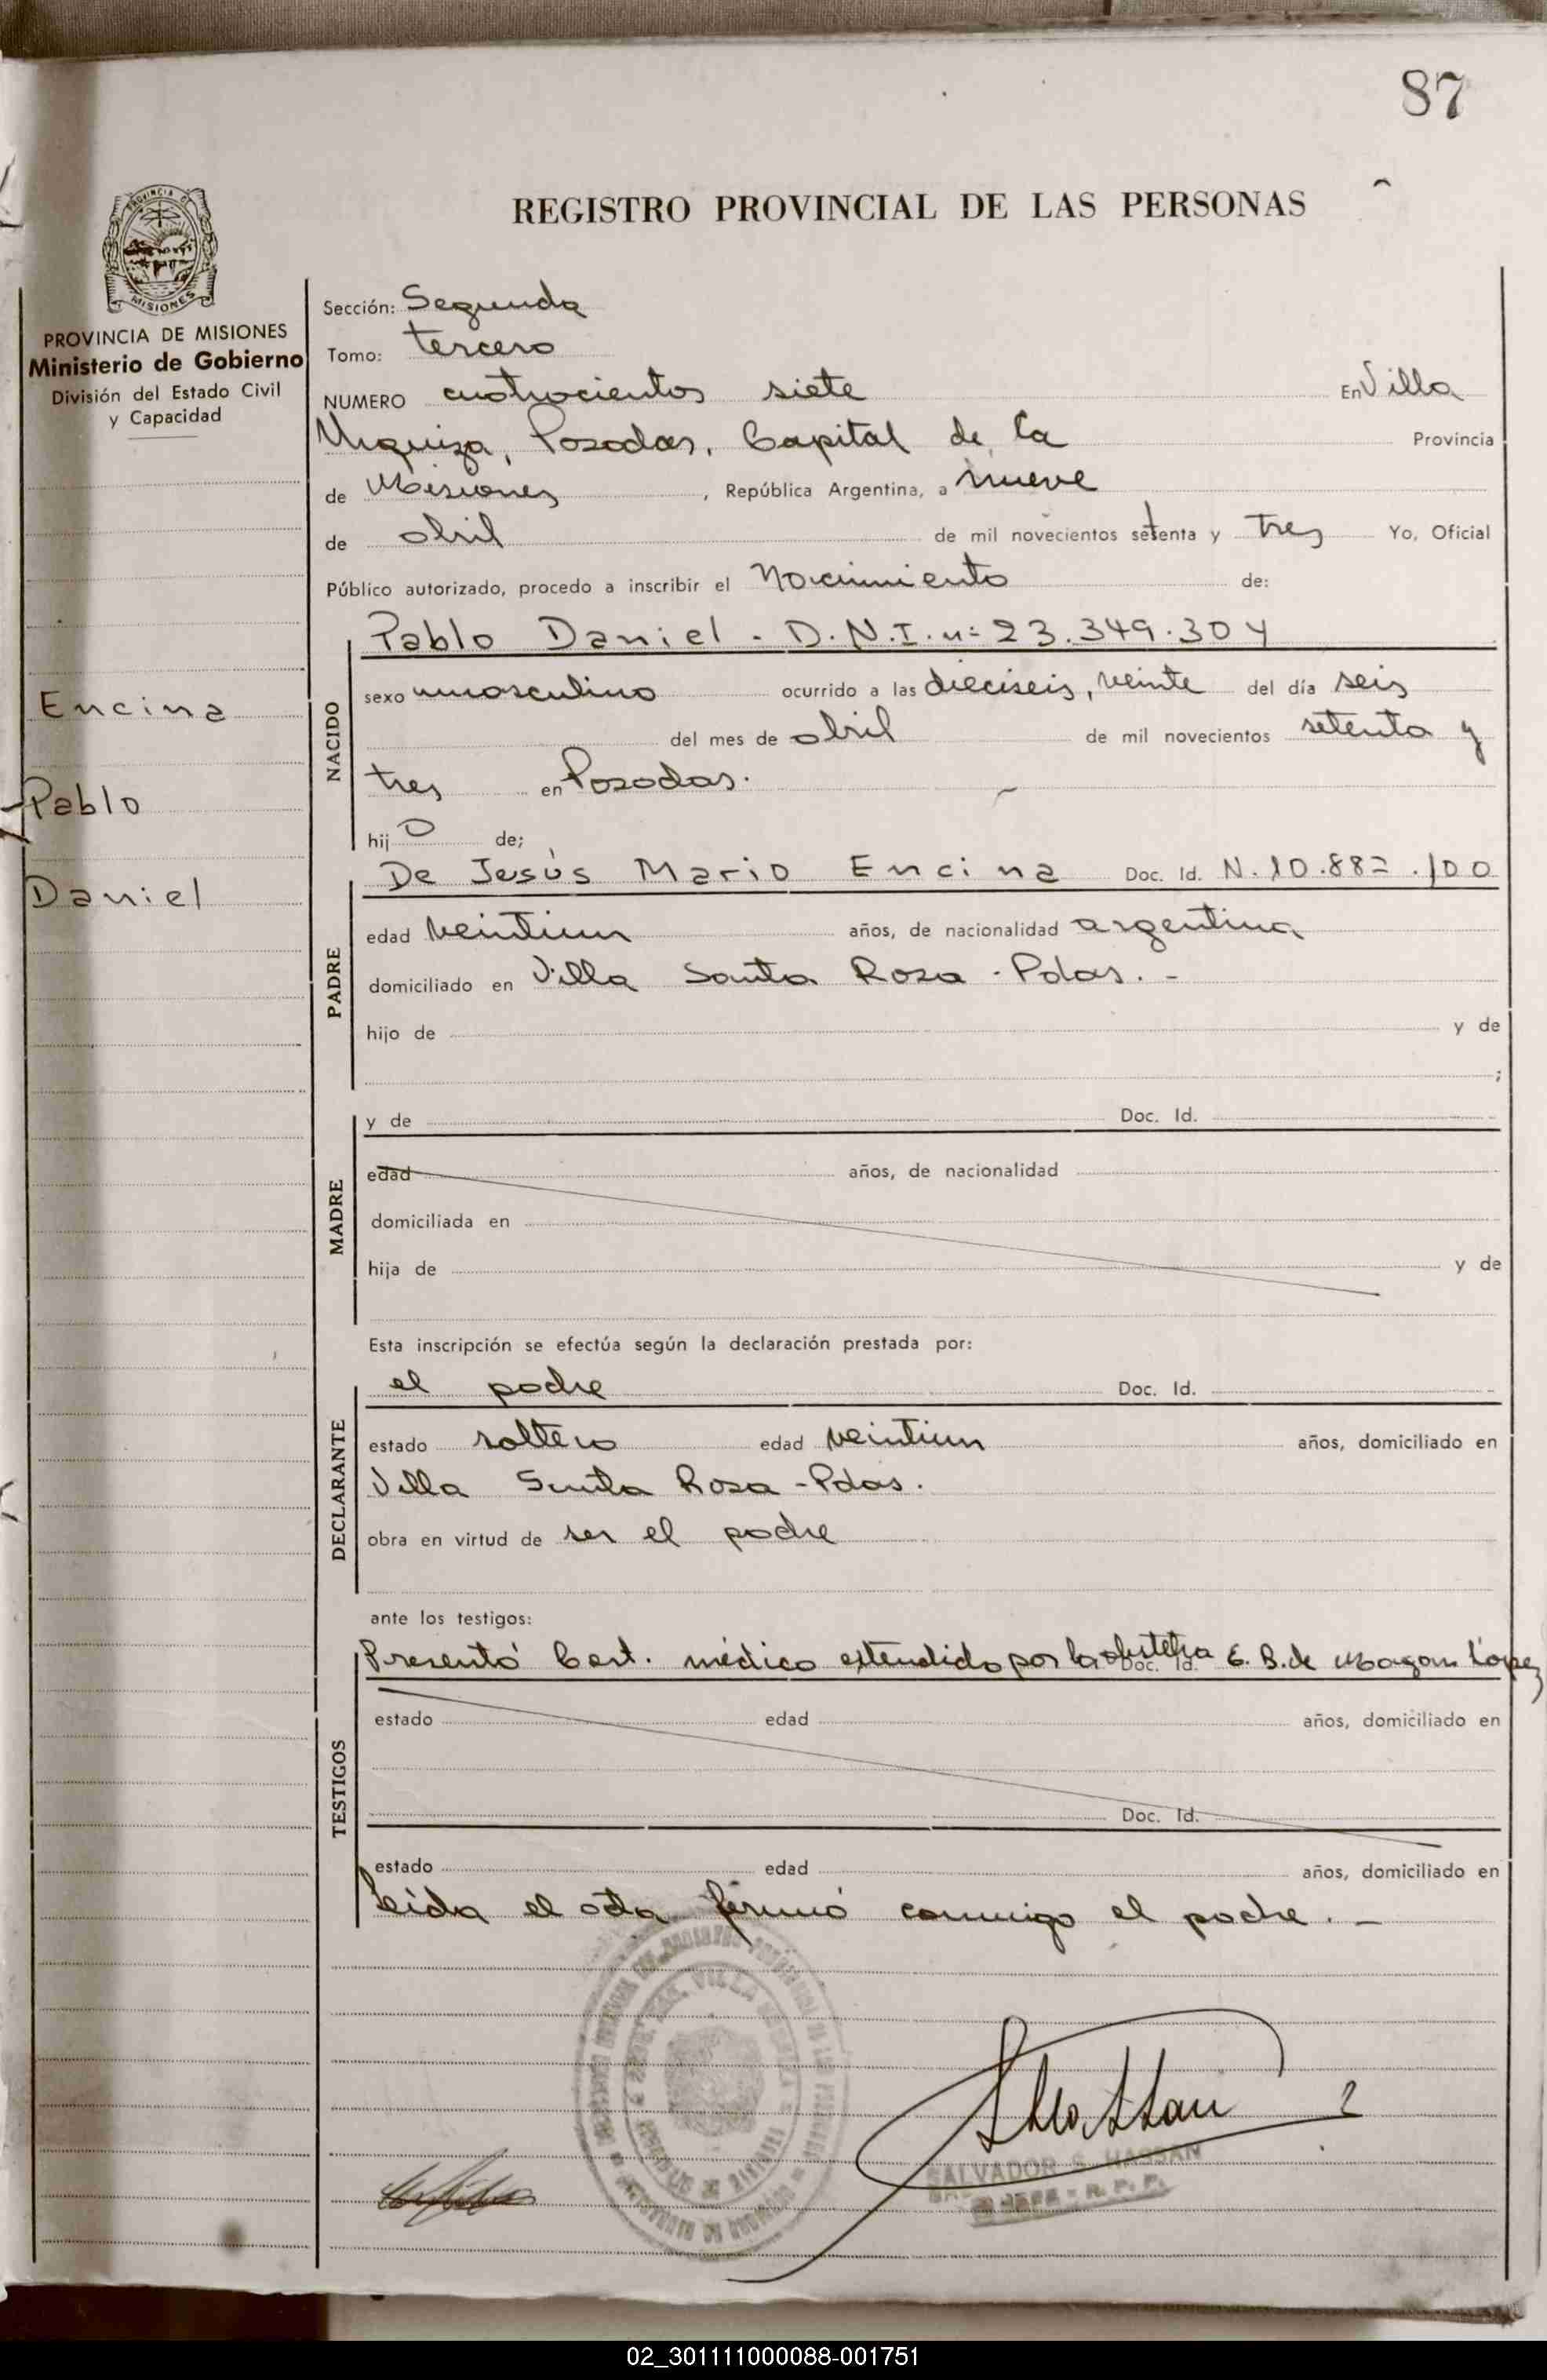 87
REGISTRO PROVINCIAL DE LAS PERSONAS
PROVINCIA DE MISIONES
Ministerio de Gobierno
División del Estado Civil
y Capacidad
Encina
Pablo
Daniel
Sección: Segunda
Tomo: tercero
NUMERO cuatrocientos siete En Villa
Urquiza, Posadas, Capital de la Provincia
de Misiones, República Argentina, a nueve
de abril de mil novecientos setenta y tres Yo, Oficial
Público autorizado, procedo a inscribir el Nacimiento de:
NACIDO
Pablo Daniel - D.N.I. nº 23.349.304
sexo masculino ocurrido a las dieciseis, veinte del día seis
del mes de abril de mil novecientos setenta y
tres en Posadas.
hij o de;
PADRE
De Jesús Mario Encina Doc. Id. N. 10.882.100
edad veintiun años, de nacionalidad argentina
domiciliado en Villa Santa Rosa - Pdas. -
hijo de y de
;
MADRE
y de Doc. Id.
edad años, de nacionalidad
domiciliada en
hija de y de
Esta inscripción se efectúa según la declaración prestada por:
DECLARANTE
el padre Doc. Id.
estado soltero edad veintiun años, domiciliado en
Villa Santa Rosa - Pdas.
obra en virtud de ser el padre
ante los testigos:
TESTIGOS
Presentó Cert. médico extendido por la obstetra E. B. de Magan López
Doc. Id.
estado edad años, domiciliado en
Doc. Id.
estado edad años, domiciliado en
Leida el acta firmó conmigo el padre. -
SALVADOR S. HASSAN
JEFE - R. P. P.
02_301111000088-001751